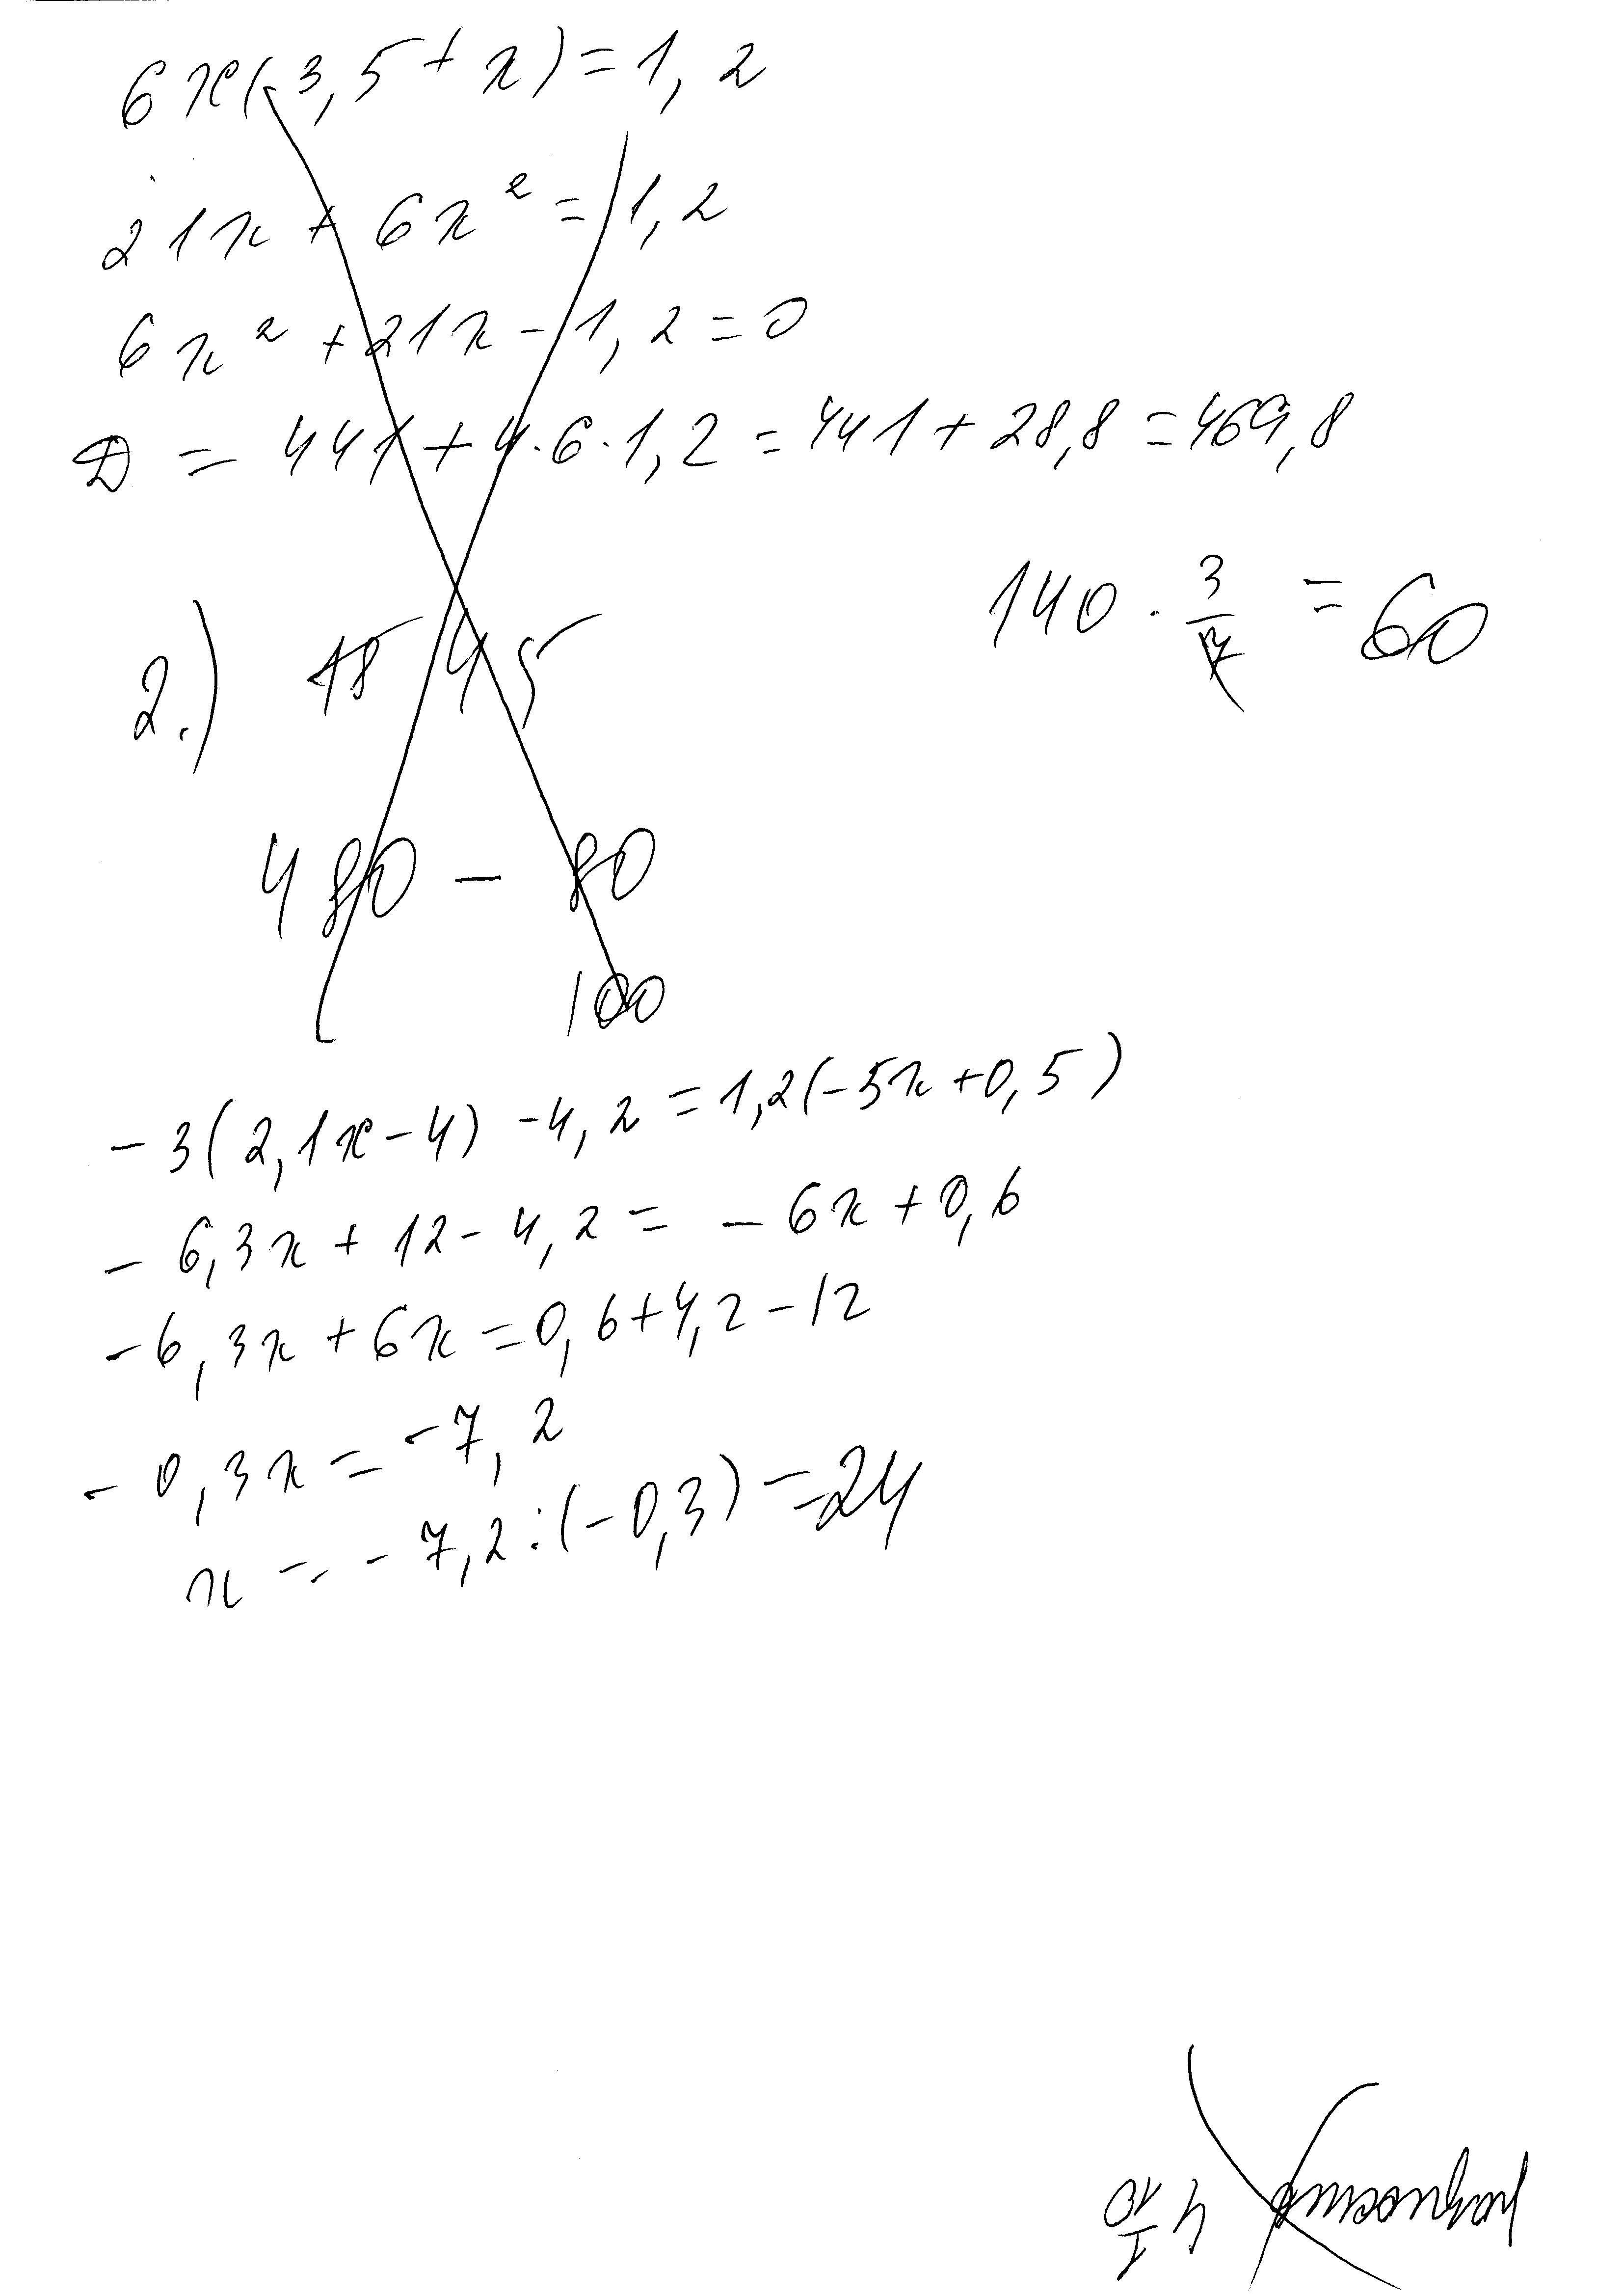 6x(-3,5+x)=1,2
21x+6x²=1,2
6x²+21x-1,2=0
D=441+4·6·1,2=441+28,8=469,8
140·3/7=60
2.) 18 45
480-80
100
-3(2,1x-4)-4,2=1,2(-5x+0,5)
-6,3x+12-4,2=-6x+0,6
-6,3x+6x=0,6+4,2-12
-0,3x=-7,2
x=-7,2:(-0,3)=24